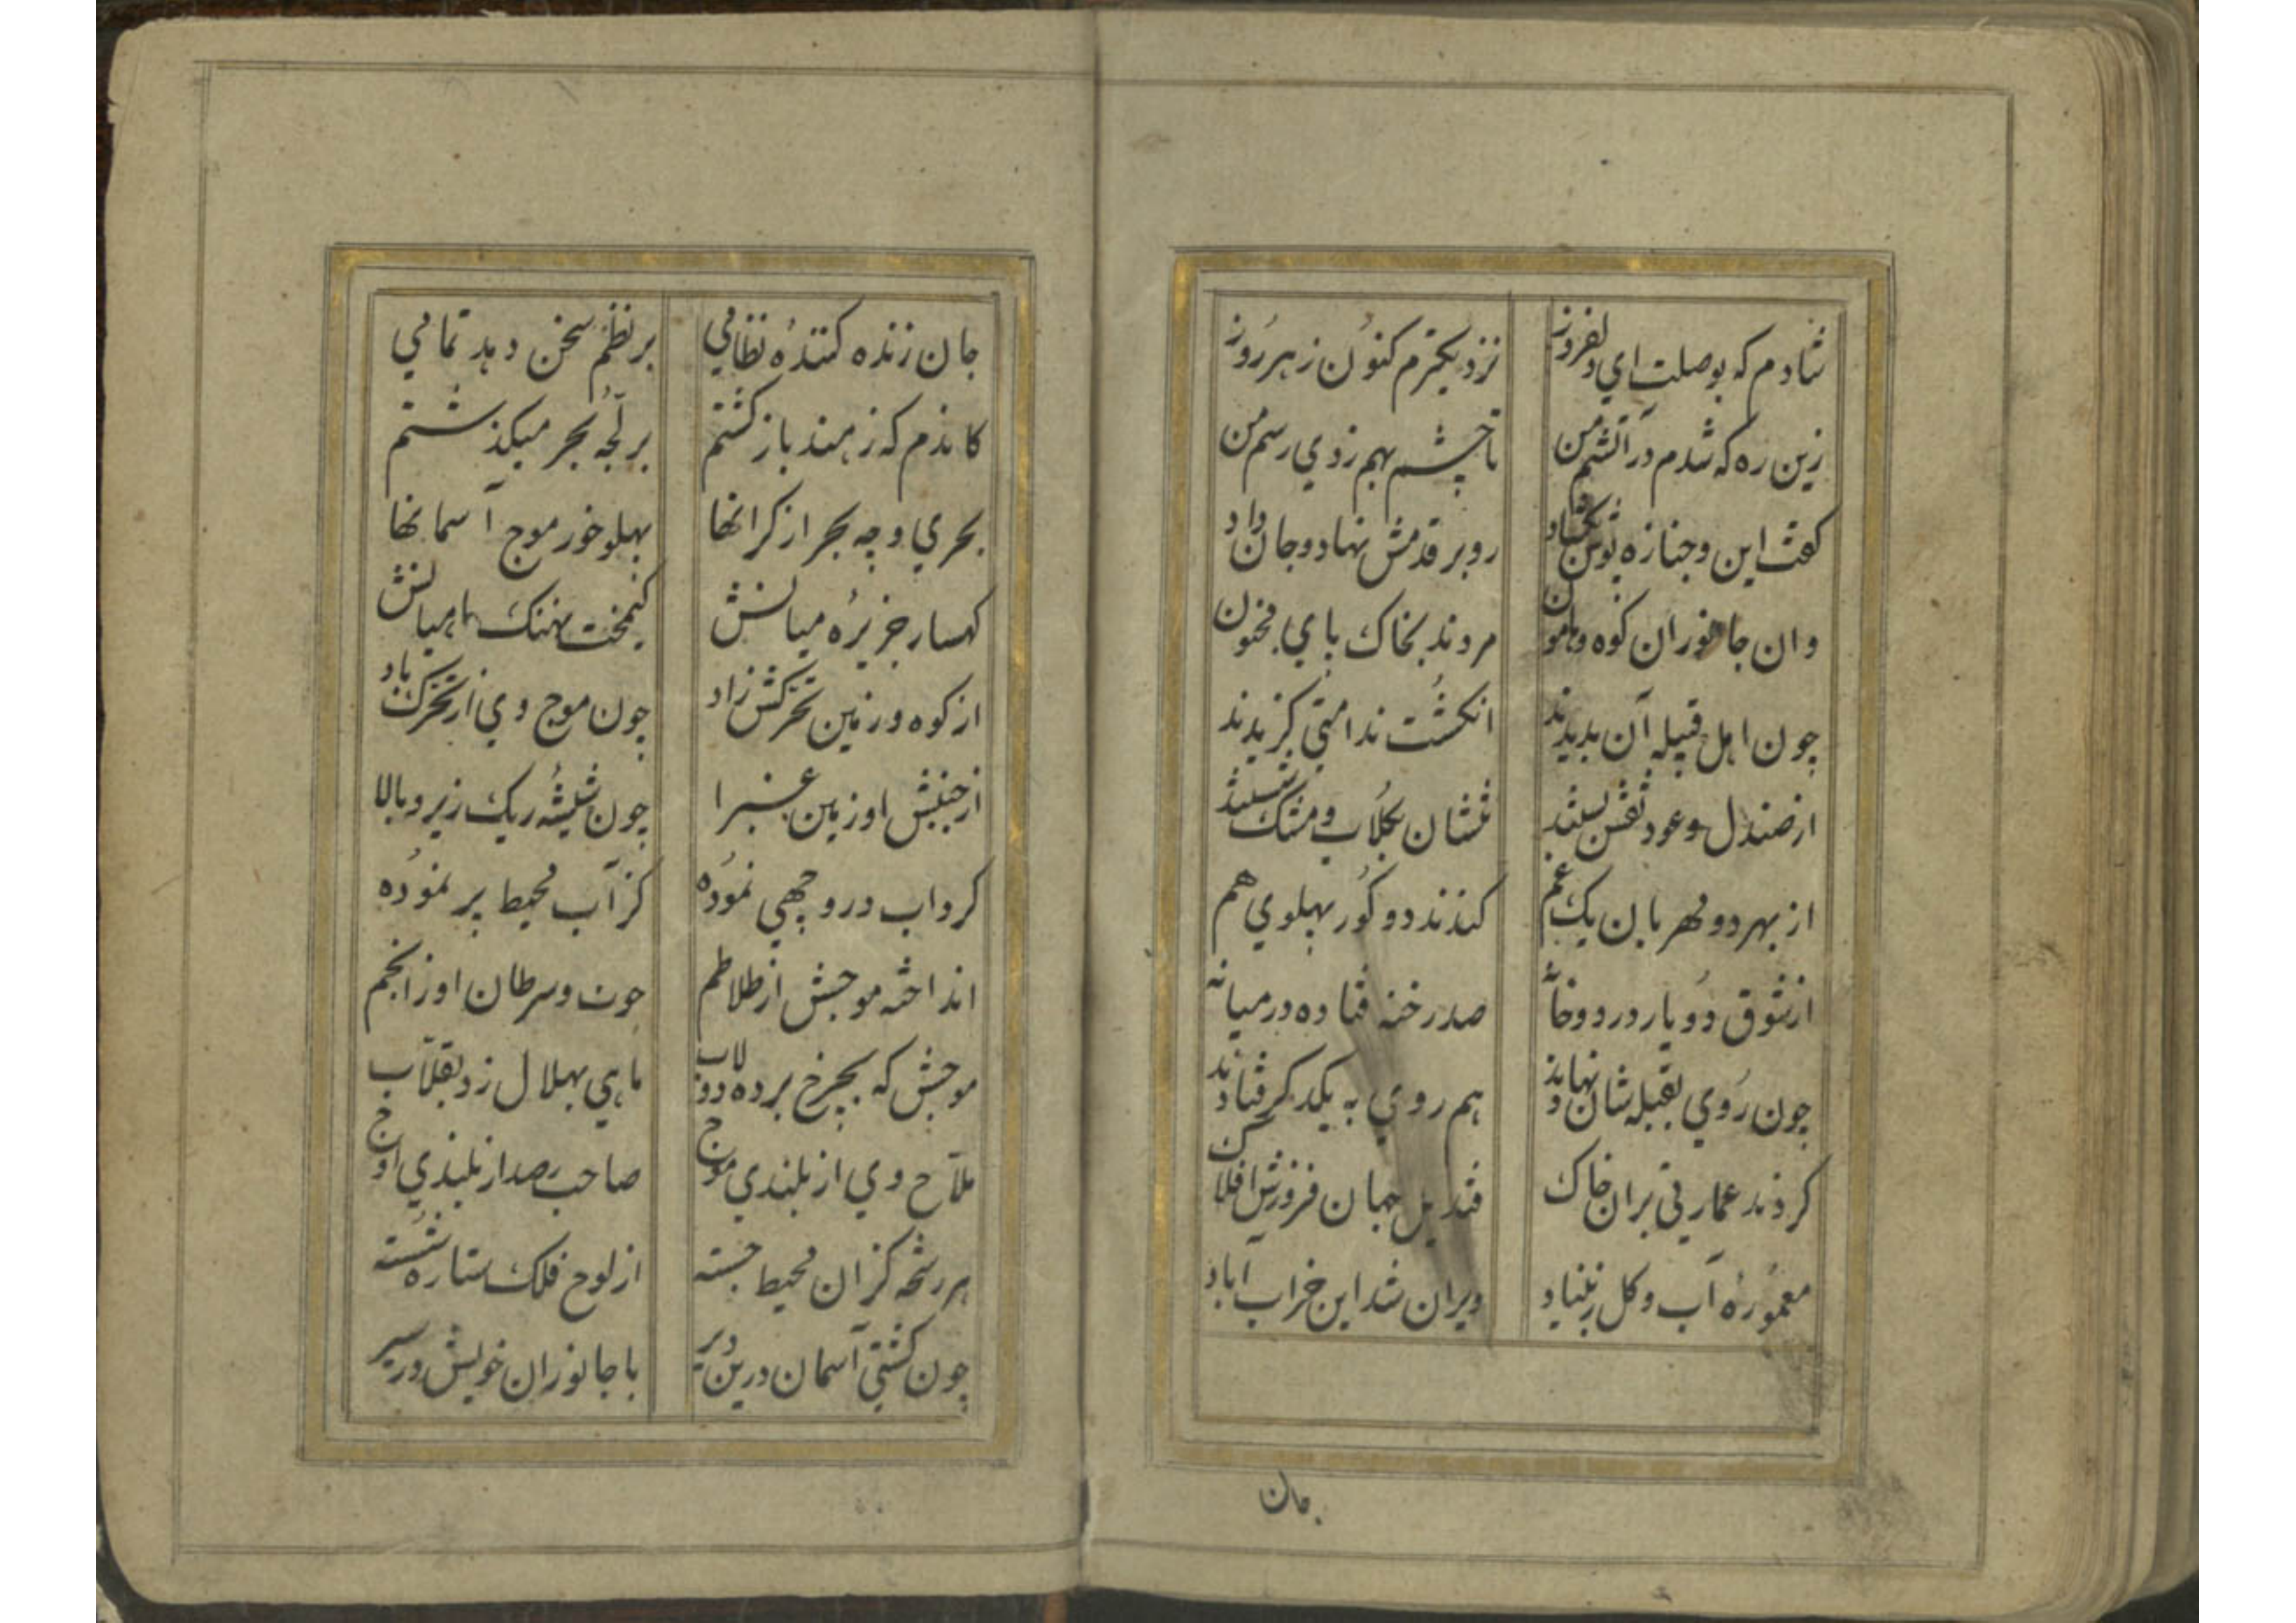 شادم که بوصلت اي دلفروز نزديکترم کنون ز هر روز
زين ره که شدم در آتشم من تا چشم بهم زدي رسم من
کفت اين و جنازه بوس بکشاد رو بر قدمش نهاد و جان داد
وان جانوران کوه و هامون مردند بخاک پاي مجنون
چون اهل قبيله آن بديدند انکشت ندامتي کزيدند
از صندل و عود نقش بستند تنشان بکلاب و مشک شستند
از بهر دو مهربان يک غم کندند دو کور پهلوي هم
از شوق دو يار در دو خانه صد رخنه فتاده در ميانه
چون روي بقبله شان نهادند هم روي به يکدکر فتادند
کردند عمارتي بران خاک قنديل جهان فروزش افلاک
معموره آب و کل ز بنياد ويران شد اين خراب آباد
جان
جان زنده کننده نظامي بر نظم سخن دهد تمامي
کاندم که ز هند باز کشتم بر لجه بحر ميکذشتم
بحري و چه بحر از کرانها پهلو خور موج آسمانها
کهسار جزيره ميانش کيمخت نهنک ماهيانش
از کوه و زمين تحرکش زاد چون موج وي از تحرک باد
از جنبش او زمين غبرا چون شيشه ريک زير و بالا
کرداب درو چهي نموده کز آب محيط پر نموده
انداخته موجش از طلاطم حوت و سرطان او ز انجم
موجش که بچرخ برده دولاب ماهي بهلال زد بقلاب
ملاح وي از بلندي موج صاحب رصد از بلندي اوج
هر رشحه کزان محيط جسته از لوح فلک ستاره شسته
چون کشتي آسمان درين دير با جانوران خويش در سير